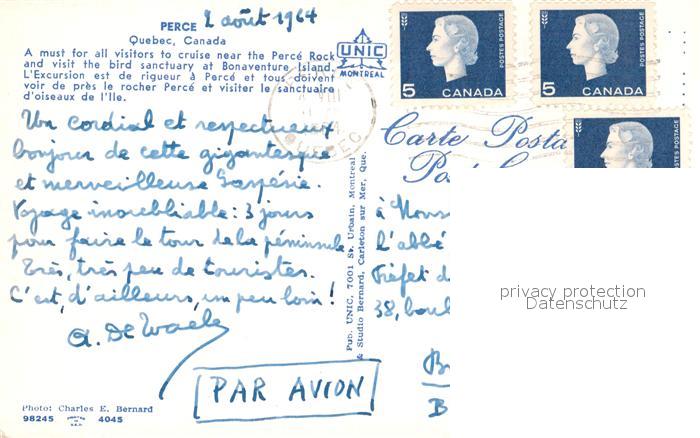 PERCE 2 août 1964
Quebec, Canada
A must for all visitors to cruise near the Percé Rock
and visit the bird sanctuary at Bonaventure Island.
L'Excursion est de rigueur à Percé et tous doivent
voir de près le rocher Percé et visiter le sanctuaire
d'oiseaux de l'Ile.
UNIC
MONTREAL
5 CANADA
POSTES POSTAGE
5 CANADA
POSTES POSTAGE
POSTES POSTAGE
Carte Posta
Un cordial et respectueux
bonjour de cette gigantesque
et merveilleuse Gaspésie.
Voyage inoubliable : 3 jours
pour faire le tour de la péninsule.
Très, très peu de touristes.
C'est, d'ailleurs, un peu loin !
A. De Waele
PAR AVION
Pub. UNIC, 7001 St. Urbain, Montreal
& Studio Bernard, Carleton sur Mer, Que.
à Mons
L'abbé
Préfet d
38, boul
B
privacy protection
Datenschutz
Photo: Charles E. Bernard
98245 4045